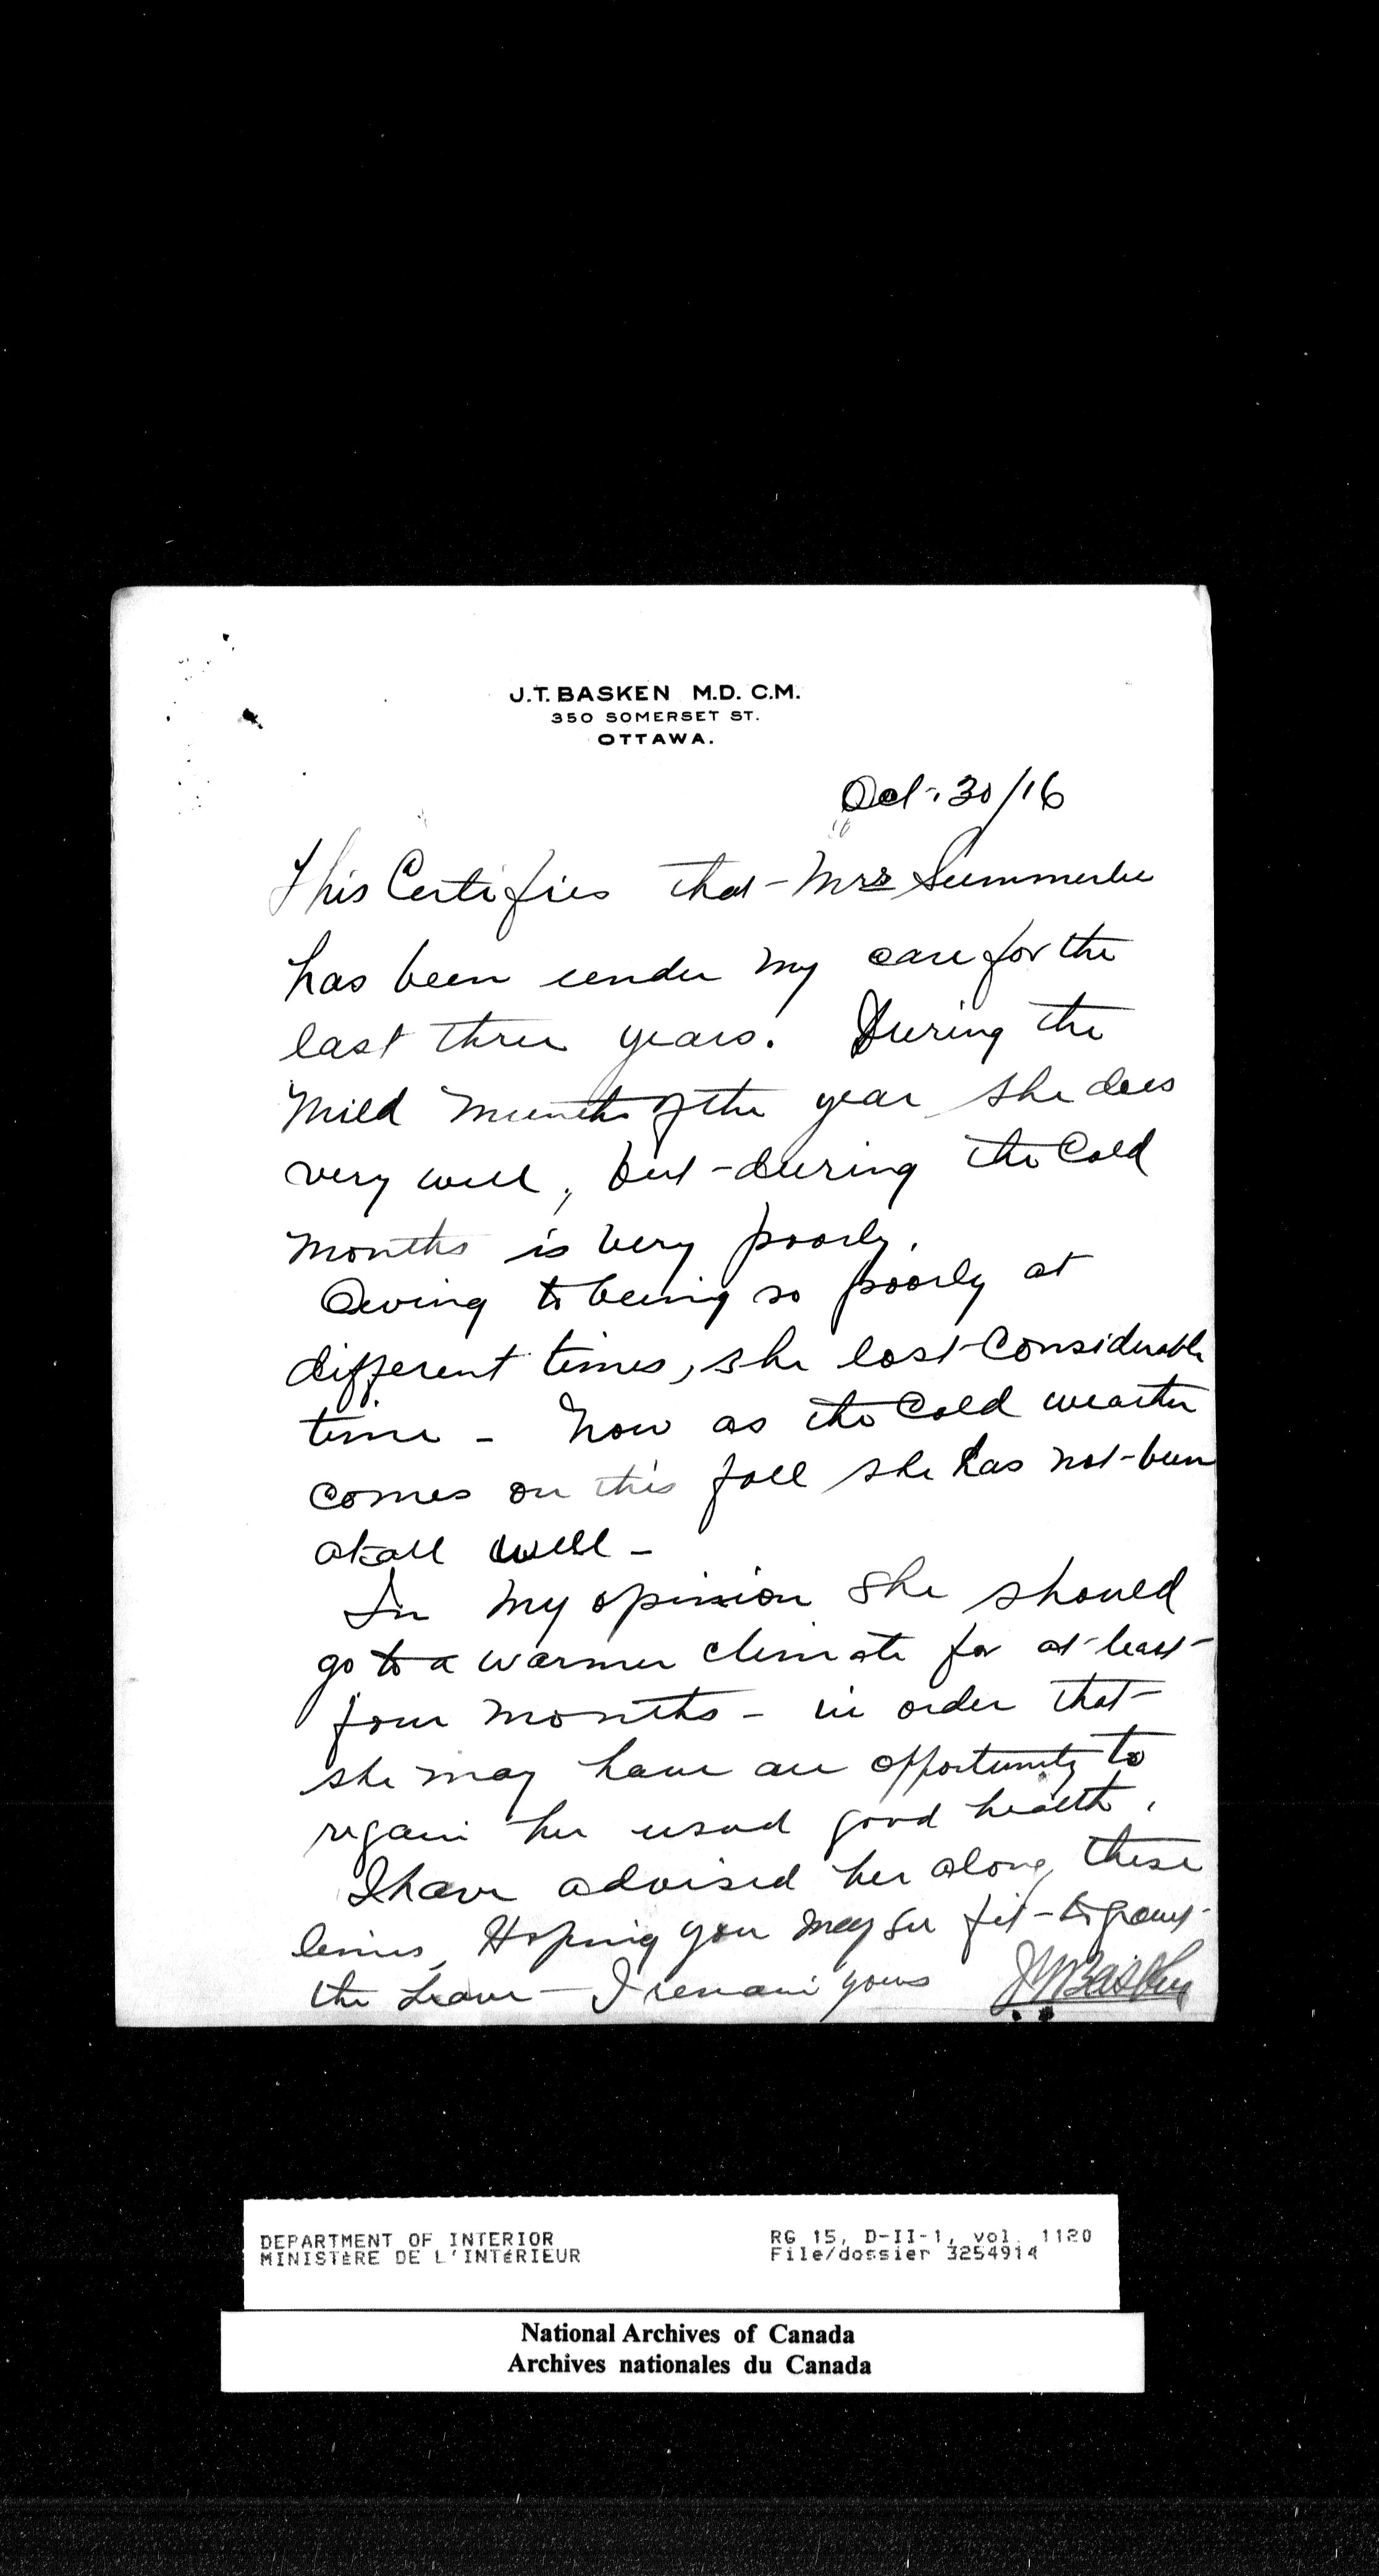 J.T. BASKEN M.D. C.M.
350 SOMERSET ST.
OTTAWA.
Oct. 30/16
This Certifies that Mrs Summerbee
has been under my care for the
last three years. During the
Mild Months of the year she does
very well, but during the Cold
months is very poorly.
Owing to being so poorly at
different times, she lost Considerable
time - Now as the Cold weather
comes on this fall she has not been
at all well -
In my opinion she should
go to a warmer climate for at least
four months - in order that
she may have an opportunity to
regain her usual good health.
I have advised her along these
lines, Hoping you may see fit to grant
the Leave - I remain yours JTBasken
DEPARTMENT OF INTERIOR
MINISTÈRE DE L'INTÉRIEUR
RG 15, D-II-1, vol. 1120
File/dossier 3254914
National Archives of Canada
Archives nationales du Canada